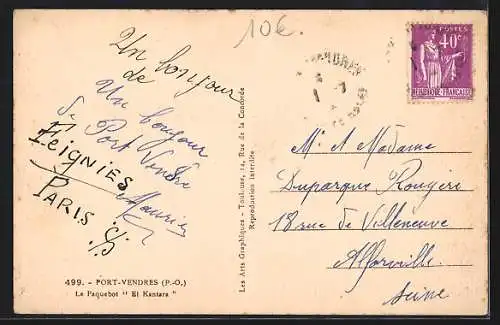 10€
Un bonjour
de
Un bonjour
de Port Vendre
Maurice
FEIGNIES
PARIS
499. - PORT-VENDRES (P.-O.)
Le Paquebot " El Kantara "
Les Arts Graphiques - Toulouse, 14, Rue de la Concorde
Reproduction Interdite
POSTES
40c
REPUBLIQUE FRANÇAISE
Mr et Madame
Duparque Rougère
18 rue de Villeneuve
Alforville
Seine